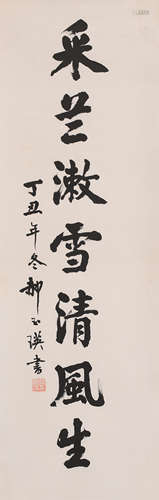 采芝漱雪清風生
丁丑年冬柳玉瑛書